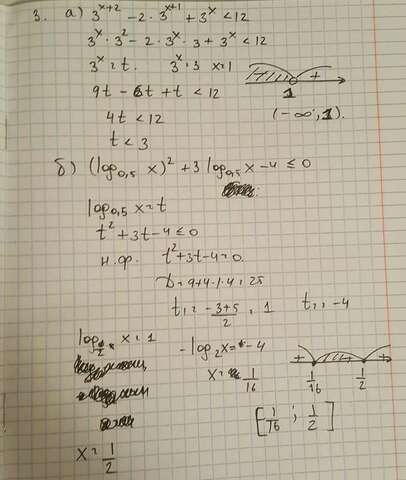 3. а) 3^(x+2) - 2 · 3^(x+1) + 3^x < 12
3^x · 3^2 - 2 · 3^x · 3 + 3^x < 12
3^x = t. 3^x = 3 x = 1
9t - 6t + t < 12
4t < 12
t < 3
+
1
(-∞; 1).
б) (log_0,5 x)^2 + 3 log_0,5 x - 4 ≤ 0
log_0,5 x = t
t^2 + 3t - 4 ≤ 0
н.ф. t^2 + 3t - 4 = 0.
D = 9 + 4 · 1 · 4 = 25
t_1 = (-3+5)/2 = 1 t_2 = -4
x = 1 -log_2 x = -4
x = 1/16
x = 1/2
+ - +
1/16 1/2
[1/16 ; 1/2]